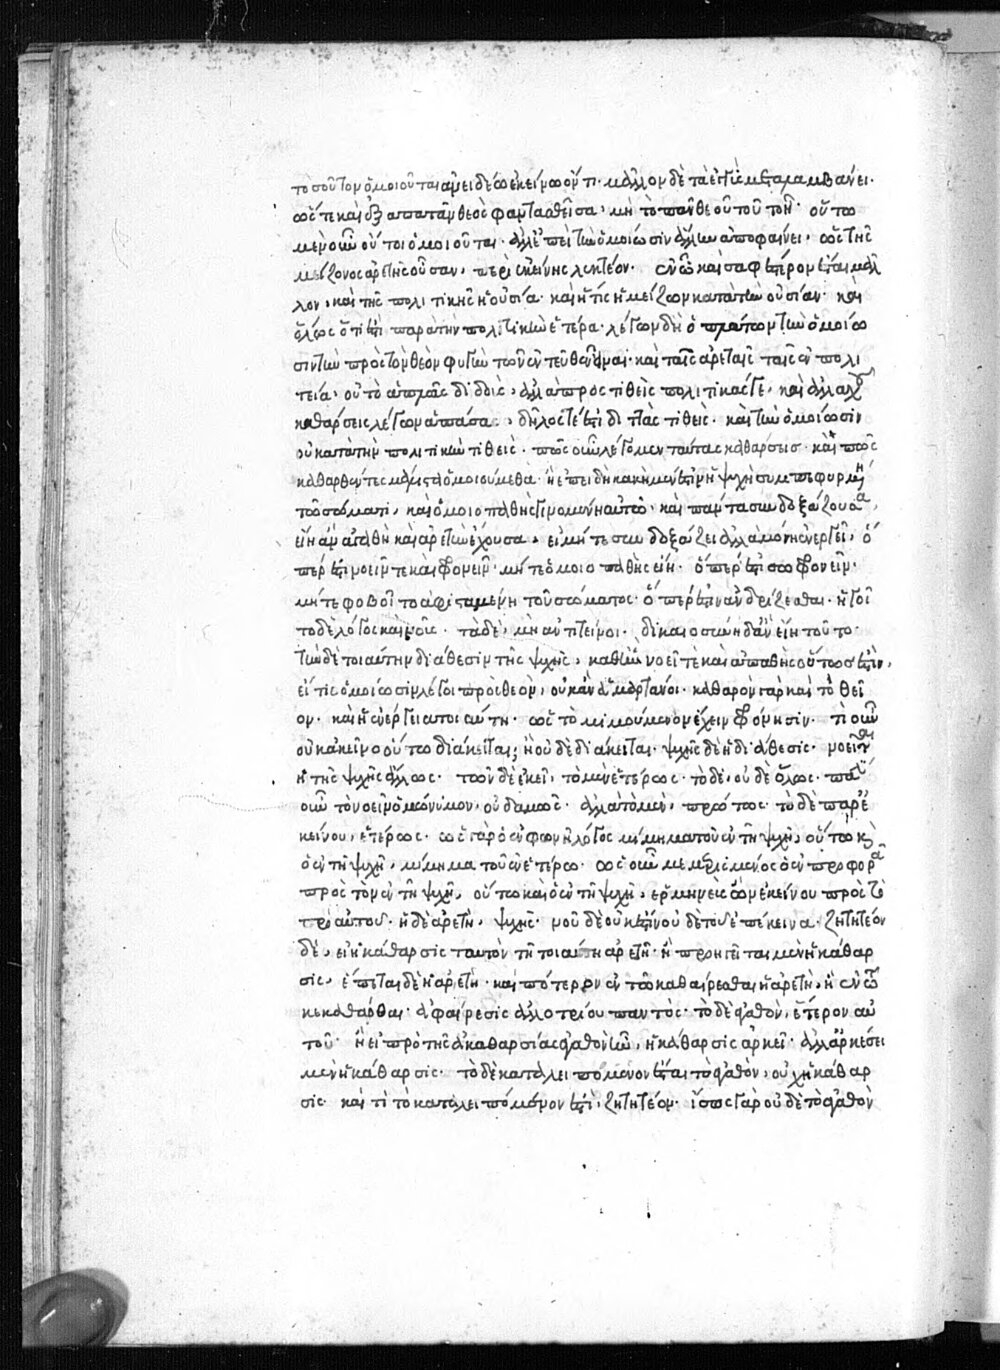 τοσοῦτον ὁμοιοῦται ἀνειδέω ἐκείνω ὄντι· μᾶλλον δὲ τὰ ἐγγὺς μεταλαμβάνει·
ὥστε καὶ ἐξαπατᾶν θεὸς φαντασθεῖσα, μὴ τὸ πᾶν θεοῦ τοῦτο ἦ· οὕτω
μὲν οὖν οὗτοι ὁμοιοῦνται· ἀλλ' ἐπεὶ τὴν ὁμοίωσιν ἄλλην ὑποφαίνει, ὡς τῆς
μείζονος ἀρετῆς οὖσαν, περὶ ἐκείνης λεκτέον· ἐν ὧ καὶ σαφέστερον ἔσται μᾶλ
λον, καὶ τῆς πολιτικῆς ἡ οὐσία· καὶ ἥτις ἡ μείζων κατὰ τὴν οὐσίαν· καὶ
ὅλως ὅτι ἐστὶ παρὰ τὴν πολιτικὴν ἑτέρα· λέγων δὴ ὁ πλάτων τὴν ὁμοίω
σιν τὴν πρὸς τὸν θεὸν φυγὴν τῶν ἐντεῦθεν εἶναι· καὶ ταῖς ἀρεταῖς ταῖς ἐν πολι
τεία, οὐ τὸ ἁπλῶς διδοὺς, ἀλλὰ προστιθεὶς πολιτικάς γε, καὶ ἀλλαχοῦ
καθάρσεις λέγων ἁπάσας, δῆλός τέ ἐστι διττὰς τιθεὶς· καὶ τὴν ὁμοίωσιν
οὐ κατὰ τὴν πολιτικὴν τιθεὶς· πῶς οὖν λέγομεν ταύτας καθάρσεις· καὶ πῶς
καθαρθέντες μάλιστα ὁμοιούμεθα· ἢ ἐπειδὴ κακὴ μέν ἐστιν ἡ ψυχὴ συμπεφυρμένη
τῶ σώματι, καὶ ὁμοιοπαθὴς γινομένη αὐτῶ· καὶ πάντα συνδοξάζουσα,
εἴη ἂν ἀγαθὴ καὶ ἀρετὴν ἔχουσα, εἰ μήτε συνδοξάζει ἀλλὰ μόνη ἐνεργεῖ, ὅ
περ ἐστὶ νοεῖν τε καὶ φρονεῖν· μήτε ὁμοιοπαθὴς εἴη· ὅπερ ἐστὶ σωφρονεῖν·
μήτε φοβοῖτο ἀφισταμένη τοῦ σώματος· ὅπερ ἐστὶν ἀνδρίζεσθαι· ἡγοῖ
το δὲ λόγος καὶ νοῦς· τὰ δὲ, μὴ ἀντιτείνοι· δικαιοσύνη δ' ἂν εἴη τοῦτο·
τὴν δὲ τοιαύτην διάθεσιν τῆς ψυχῆς, καθ' ἣν νοεῖ τὲ καὶ ἀπαθὴς οὕτως ἐστὶν,
εἴ τις ὁμοίωσιν λέγοι πρὸς θεὸν, οὐκ ἂν ἁμαρτάνοι· καθαρὸν γὰρ καὶ τὸ θεῖ
ον· καὶ ἡ ἐνέργεια τοιαύτη· ὡς τὸ μιμούμενον ἔχειν φρόνησιν· τί οὖν
οὐ κἀκεῖνο οὕτω διάκειται; ἢ οὐδὲ διάκειται· ψυχῆς δὲ ἡ διάθεσις· νοεῖ τε
ἡ τῆς ψυχῆς ἄλλως· τῶν δὲ ἐκεῖ, τὸ μὲν ἑτέρως· τὸ δὲ, οὐδὲ ὅλως· πάλιν
οὖν τὸ νοεῖν ὁμώνυμον, οὐδαμῶς· ἀλλὰ τὸ μὲν, πρώτως· τὸ δὲ παρ' ἐ
κείνου, ἑτέρως· ὡς γὰρ ὁ ἐν φωνῆ λόγος μίμημα τοῦ ἐν τῆ ψυχῆ, οὕτω καὶ
ὁ ἐν τῆ ψυχῆ, μίμημα τοῦ ἐν ἑτέρω· ὡς οὖν μεμερισμένος ὁ ἐν προφορᾶ
πρὸς τὸν ἐν τῆ ψυχῆ, οὕτω καὶ ὁ ἐν τῆ ψυχῆ, ἑρμηνεὺς ὢν ἐκείνου πρὸς τὸ
πρὸ αὐτοῦ· ἡ δὲ ἀρετὴ, ψυχῆς· νοῦ δὲ οὐκ ἔστιν οὐδὲ τοῦ ἐπέκεινα· ζητητέον
δὲ, εἰ ἡ κάθαρσις ταυτὸν τῆ τοιαύτη ἀρετῆ· ἢ προηγεῖται μὲν ἡ κάθαρ
σις, ἕπεται δὲ ἡ ἀρετὴ· καὶ πότερον ἐν τῶ καθαίρεσθαι ἡ ἀρετὴ, ἢ ἐν τῶ
κεκαθάρθαι· ἀφαίρεσις ἀλλοτρίου παντὸς· τὸ δὲ ἀγαθὸν, ἕτερον αὐ
τοῦ· ἢ εἰ πρὸ τῆς ἀκαθαρσίας ἀγαθὸν ἦν, ἡ κάθαρσις ἀρκεῖ· ἀλλ' ἀρκέσει
μὲν ἡ κάθαρσις· τὸ δὲ καταλειπόμενον ἔσται τὸ ἀγαθὸν, οὐχ ἡ κάθαρ
σις· καὶ τί τὸ καταλειπόμενόν ἐστι, ζητητέον· ἴσως γὰρ οὐδὲ τὸ ἀγαθὸν